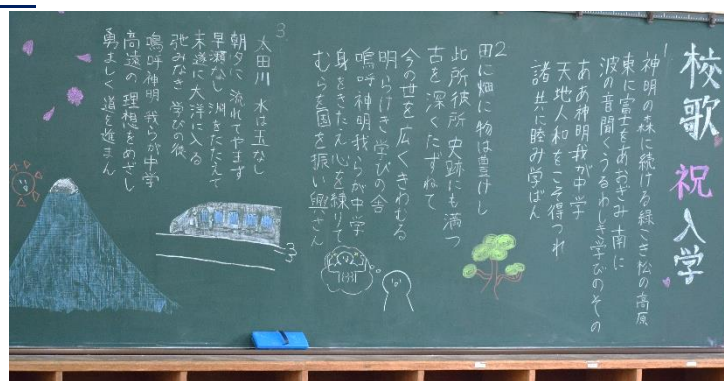 校歌 祝 入学
1
神明の森に続ける緑こき松の高原
東に富士をあおぎみ 南に
波の音聞くうるわしき学びのその
ああ神明我が中学
天地人和をこそ得つれ
諸共に睦み学ばん
2
田に畑に物は豊けし
此所彼所 史跡にも満つ
古を深くたずねて
今の世を広くきわむる
明らけき学びの舎
嗚呼神明我らが中学
身をきたえ心を練りて
むらを国を振い興さん
3.
太田川 水は玉なし
朝夕に 流れてやまず
早瀬なし 渕をたたえて
末遂に大洋に入る
弛みなき 学びの後
嗚呼神明 我らが中学
高遠の 理想をめざし
勇ましく道を進まん